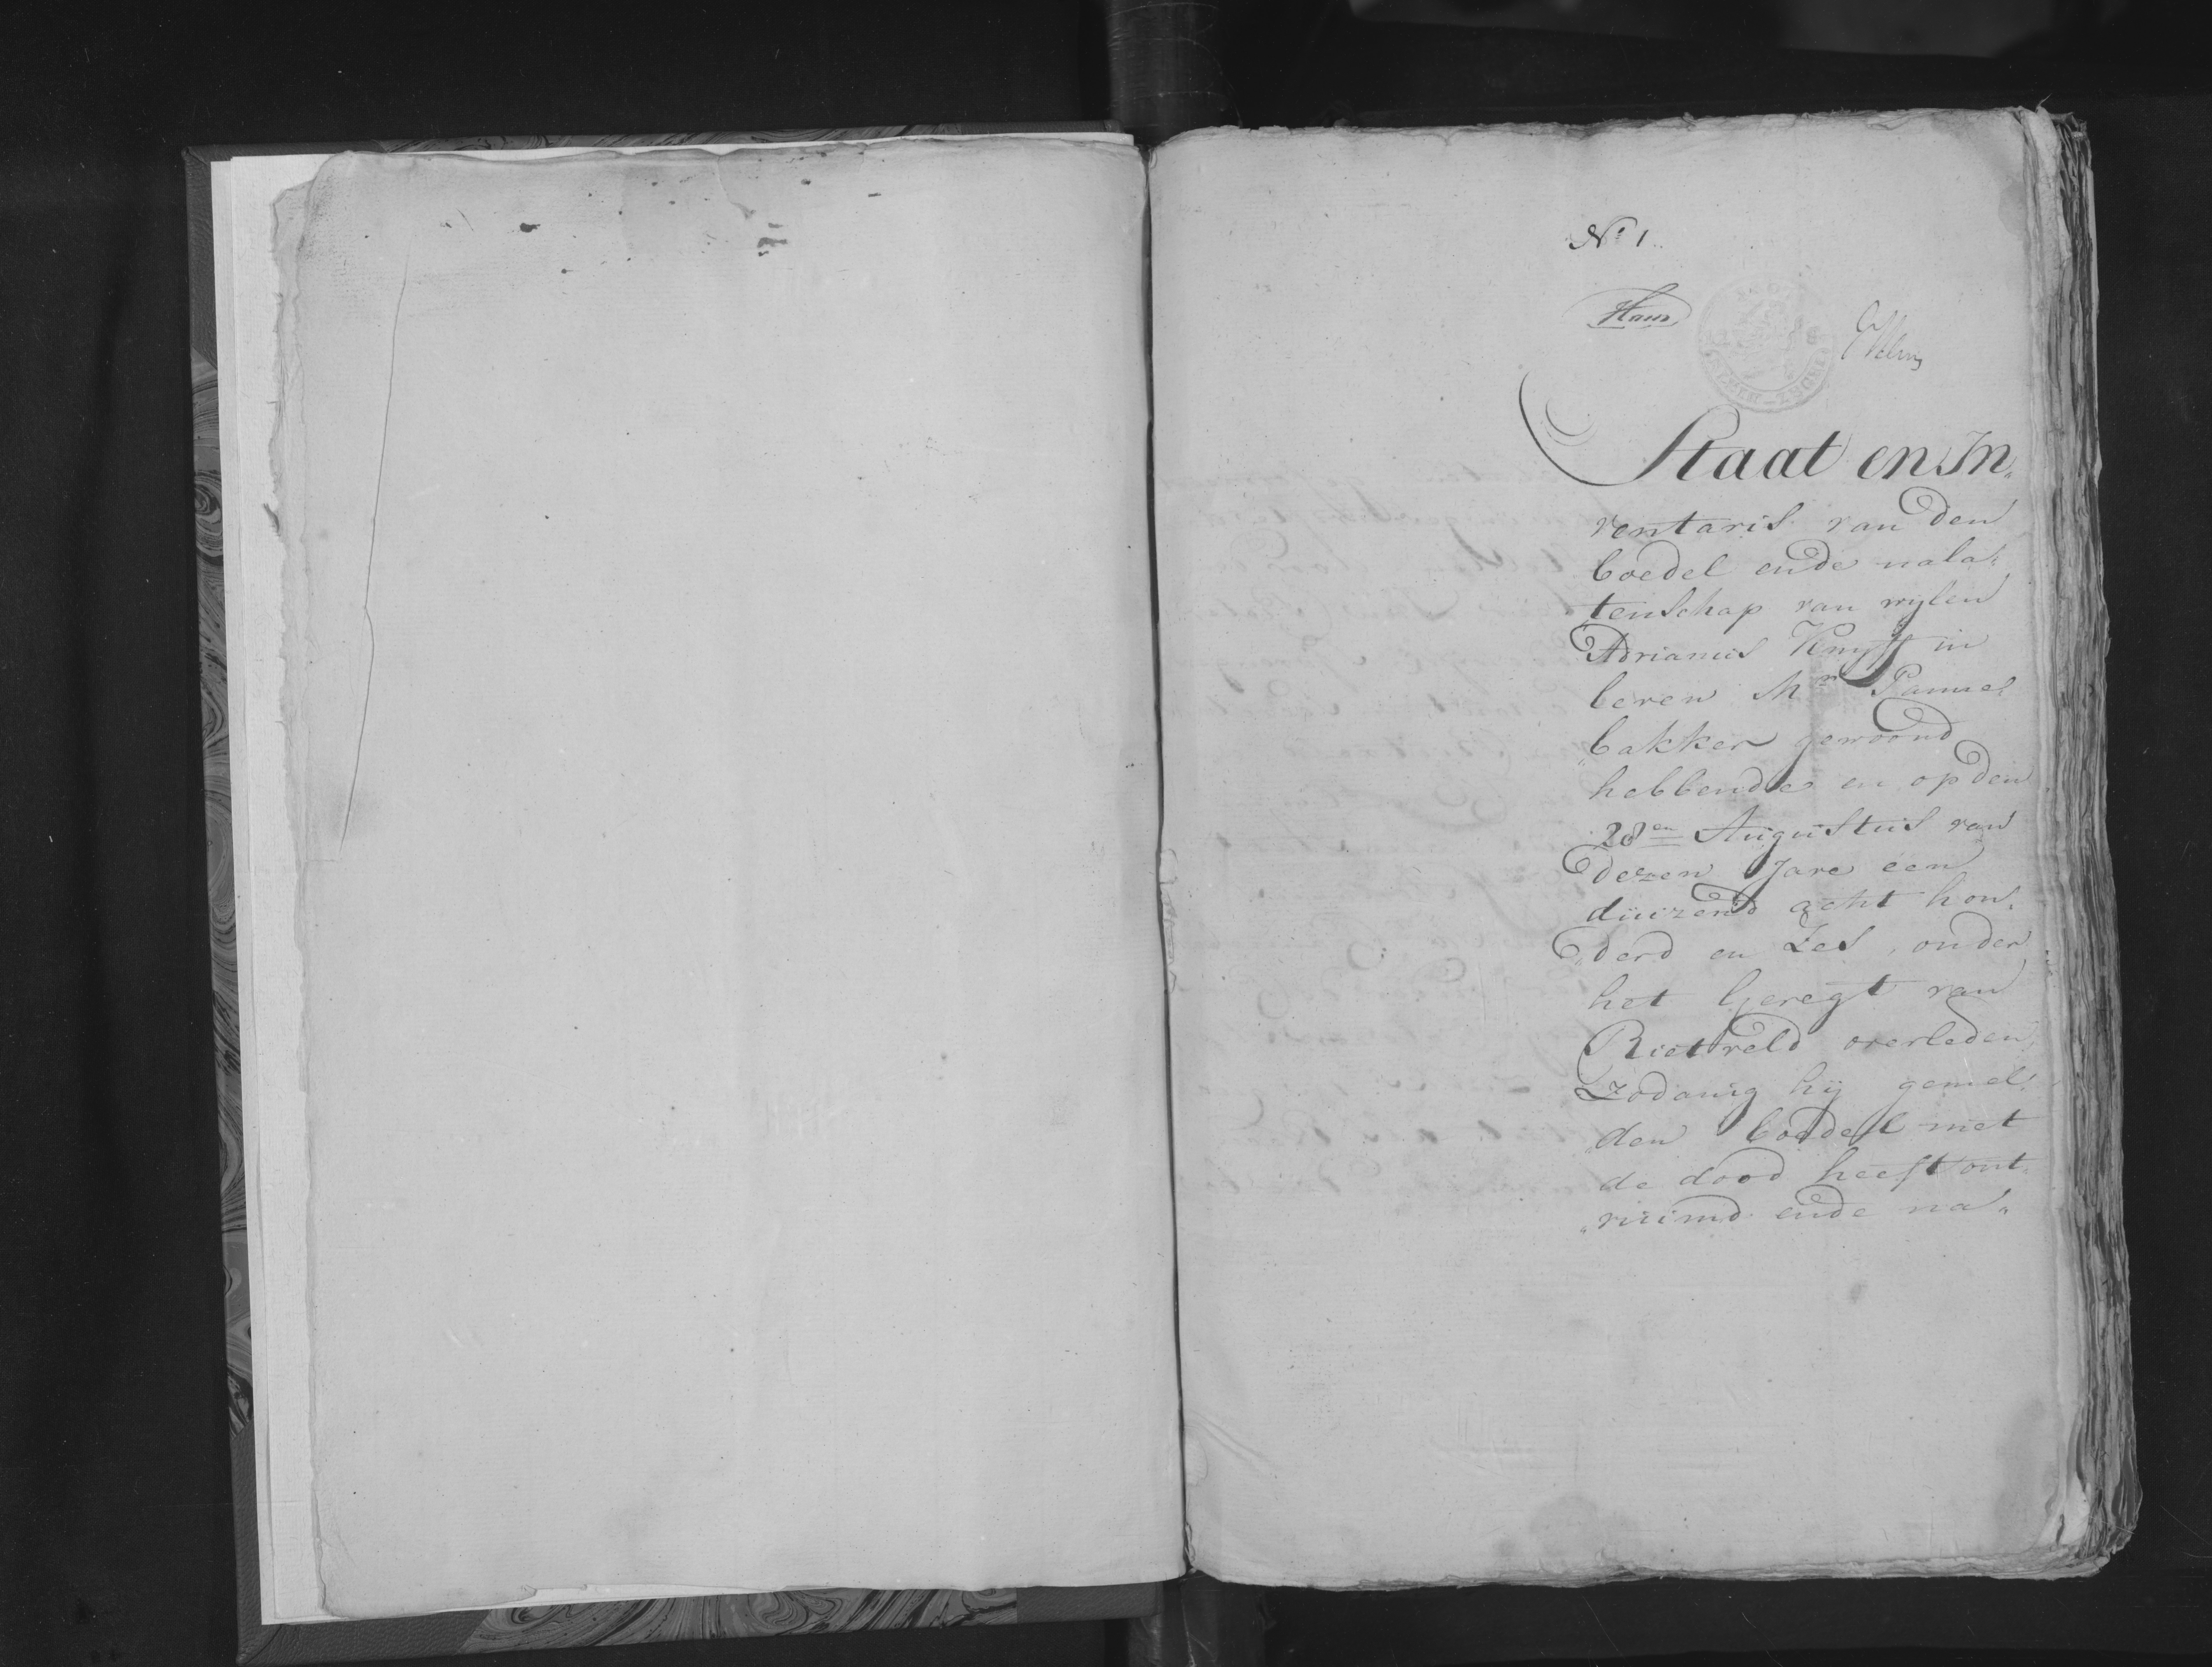 No 1
Staat en In„
ventaris van den
boedel ende nala„
tenschap van wylen
Adrianus Knyff in
leven Mr Pannen
„bakker gewoond
hebbende en op den
28en Augustus van
dezen Jare een
duizend acht hon„
„derd en Zes, onder
het Geregt van
Rietveld overleden,
Zodanig hij gemel„
„den boedel met
de dood heeft ont„
„ruimd ende na„